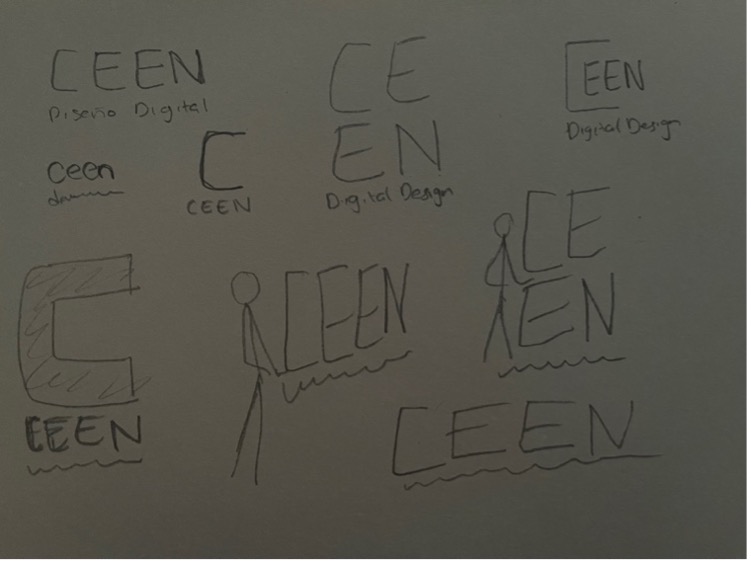 CEEN
Diseño Digital
CE
EN
Digital Design
CEEN
Digital Design
ceen
C
CEEN
C
CEEN
CEEN
CE
EN
CEEN